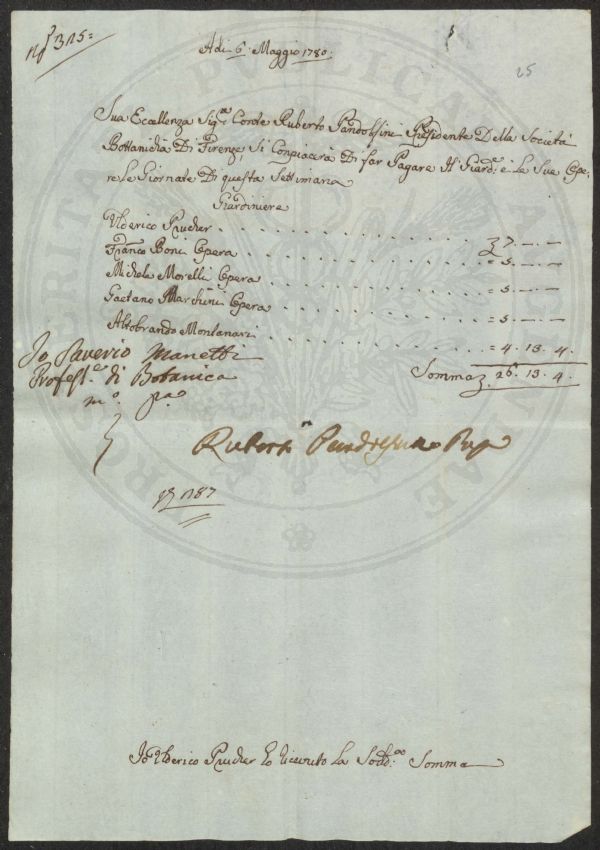 N° 315=
Adi 6. Maggio 1780.
25
Sua Eccellenza Sig.re Conte Ruberto Pandolfini Presidente Della Società
Bottanicha Di Firenze, Si Conpiacerà Di far Pagare Il Giard.e e Le Sue Ope-
re Le Giornate Di questa Settimana
Giardiniere
Ulderico Prucher . . . . . . . . . . 7. — . —
Franco Boni Opera . . . . . . . . . . = 5. — . —
Michele Morelli Opera . . . . . . . . . . = 5. — . —
Gaetano Marchini Opera . . . . . . . . . . = 5. — . —
Altobrando Montanari . . . . . . . . . . = 4. 13. 4.
Somma 26. 13. 4.
Io Saverio Manetti
Profess.e di Botanica
m.o p.a
Ruberto Pandolfini
1787
Io Ulderico Prucher ho ricevuto La Sodd.a Somma
PUBLICA FLORENTINAE